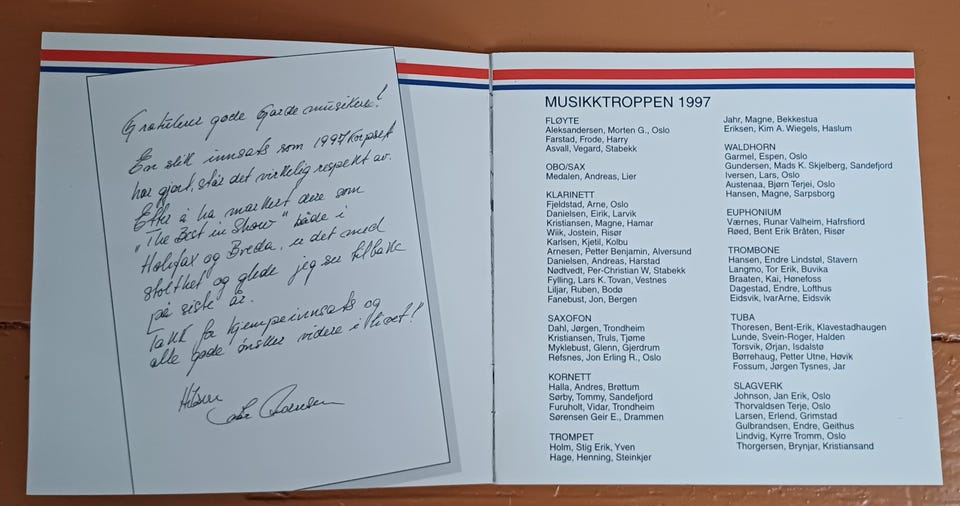 Gratulerer gode Garde musikere!
En slik innsats som 1997 korpset
har gjort, står det virkelig respekt av.
Etter å ha markert dere som
"The Best in Show" både i
Halifax og Breda, er det med
stolthet og glede jeg ser tilbake
på siste år.
Takk for kjempeinnsats og
alle gode ønsker videre i livet!
Hilsen
MUSIKKTROPPEN 1997
FLØYTE
Aleksandersen, Morten G., Oslo
Farstad, Frode, Harry
Asvall, Vegard, Stabekk
OBO/SAX
Medalen, Andreas, Lier
KLARINETT
Fjeldstad, Arne, Oslo
Danielsen, Eirik, Larvik
Kristiansen, Magne, Hamar
Wiik, Jostein, Risør
Karlsen, Kjetil, Kolbu
Arnesen, Petter Benjamin, Alversund
Danielsen, Andreas, Harstad
Nødtvedt, Per-Christian W, Stabekk
Fylling, Lars K. Tovan, Vestnes
Liljar, Ruben, Bodø
Fanebust, Jon, Bergen
SAXOFON
Dahl, Jørgen, Trondheim
Kristiansen, Truls, Tjøme
Myklebust, Glenn, Gjerdrum
Refsnes, Jon Erling R., Oslo
KORNETT
Halla, Andres, Brøttum
Sørby, Tommy, Sandefjord
Furuholt, Vidar, Trondheim
Sørensen Geir E., Drammen
TROMPET
Holm, Stig Erik, Yven
Hage, Henning, Steinkjer
Jahr, Magne, Bekkestua
Eriksen, Kim A. Wiegels, Haslum
WALDHORN
Garmel, Espen, Oslo
Gundersen, Mads K. Skjelberg, Sandefjord
Iversen, Lars, Oslo
Austenaa, Bjørn Terjei, Oslo
Hansen, Magne, Sarpsborg
EUPHONIUM
Værnes, Runar Valheim, Hafrsfiord
Røed, Bent Erik Bråten, Risør
TROMBONE
Hansen, Endre Lindstøl, Stavern
Langmo, Tor Erik, Buvika
Braaten, Kai, Hønefoss
Dagestad, Endre, Lofthus
Eidsvik, IvarArne, Eidsvik
TUBA
Thoresen, Bent-Erik, Klavestadhaugen
Lunde, Svein-Roger, Halden
Torsvik, Ørjan, Isdalstø
Børrehaug, Petter Utne, Høvik
Fossum, Jørgen Tysnes, Jar
SLAGVERK
Johnson, Jan Erik, Oslo
Thorvaldsen Terje, Oslo
Larsen, Erlend, Grimstad
Gulbrandsen, Endre, Geithus
Lindvig, Kyrre Tromm, Oslo
Thorgersen, Brynjar, Kristiansand